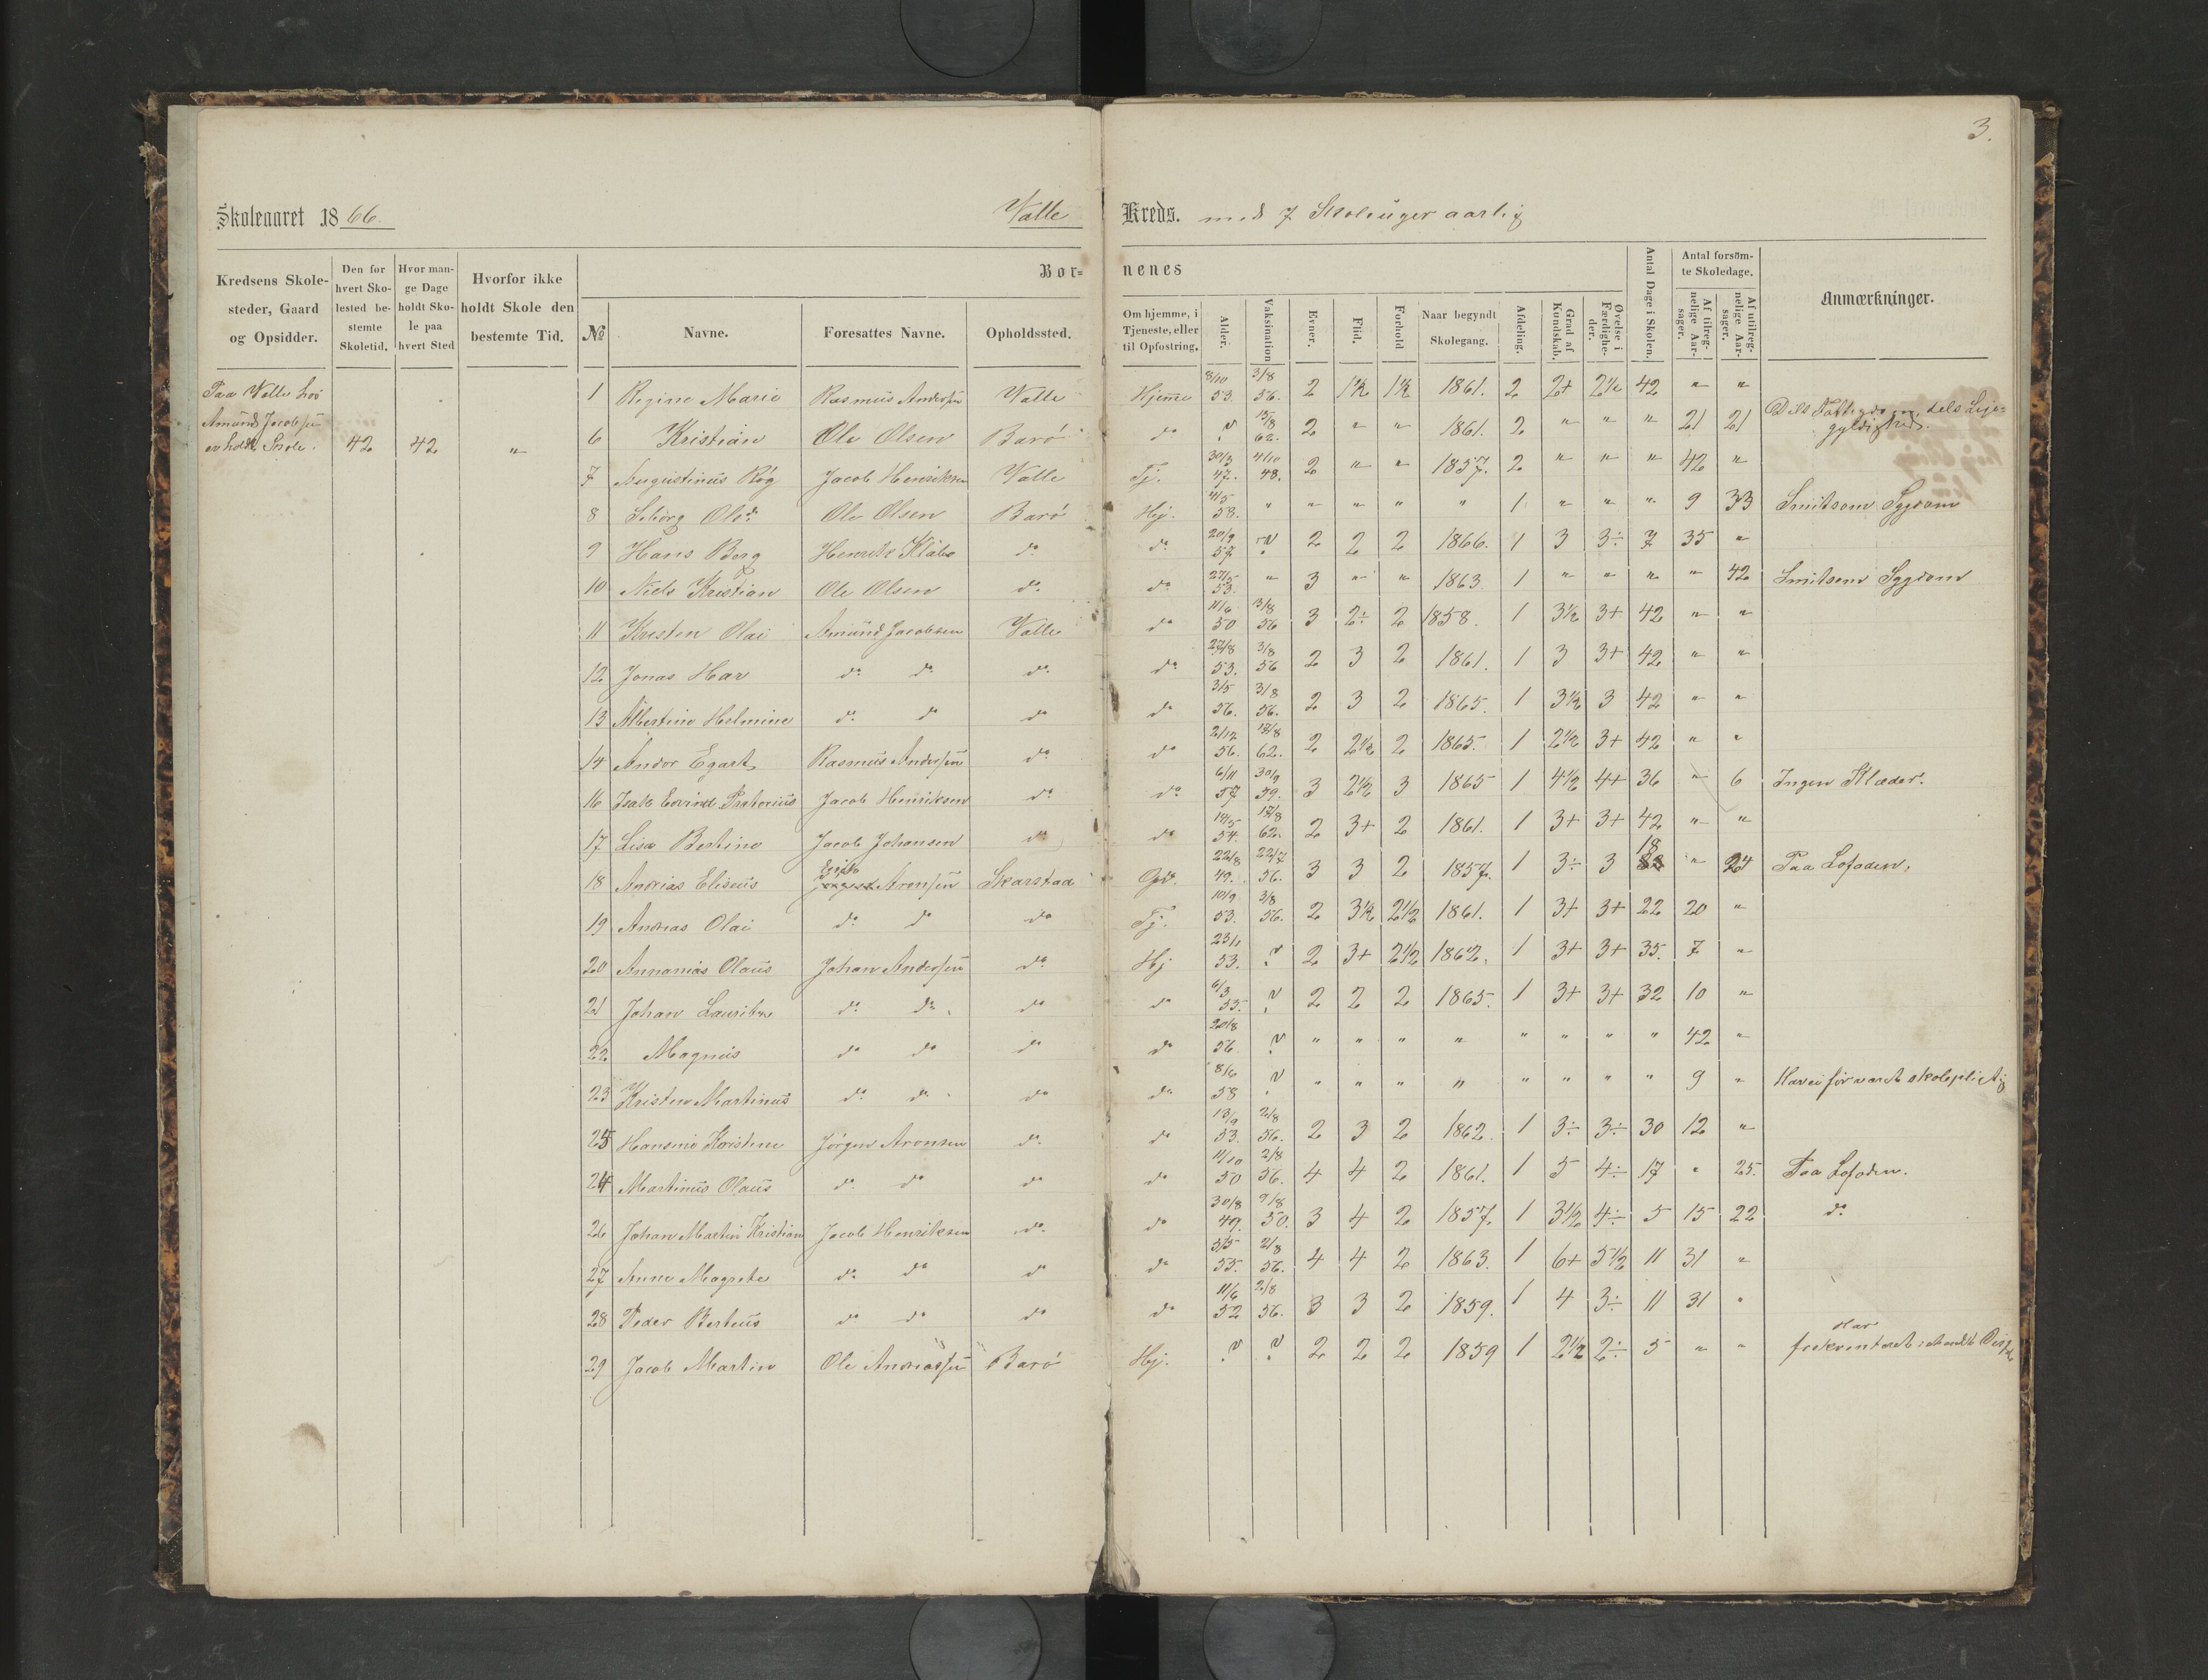 3.
Skoleaaret 1866.
Valle Kreds. med 7 Skoleuger aarlig
Kredsens Skolesteder, Gaard og Opsidder.
Den for hvert Skolested bestemte Skoletid.
Hvor mange Dage holdt Skole paa hvert Sted
Hvorfor ikke holdt Skole den bestemte Tid.
Bor=
nenes
№
Navne.
Foresattes Navne.
Opholdssted.
Om hjemme, i Tjeneste, eller til Opfostring.
Alder.
Vaksination
Evner.
Flid.
Forhold
Naar begyndt Skolegang.
Afdeling.
Grad af Kundskab.
Øvelse i Færdigheder.
Antal Dage i Skolen.
Antal forsømte Skoledage.
Af tilregnelige Aarsager.
Af utilregnelige Aarsager.
Anmærkninger.
Paa Valle hos
Amund Jacobsen
er holdt Skole. 42 42 "
1 Regine Marie Rasmus Andersen Valle Hjemme 8/10 53. 3/8 56. 2 1½ 1½ 1861. 2 2+ 2½ 42 " "
6 Kristian Ole Olsen Barø do ? 15/8 62. 2 " " 1861. 2 " " " 21 21 Dels Fattigdom, dels Lige=
gyldighed.
7 Augustinus Røg Jacob Henriksen Valle Tj. 30/3 47. 4/10 48. 2 " " 1857. 2 " " " 42 "
8 Ole Olsen Barø Hj. 4/5 58. " " " " " 1 " " " 9 33 Smitsom Sygdom
9 Hans Berg Henrik Klæbo do do 20/9 57 ? 2 2 2 1866. 1 3 3÷ 7 35 "
10 Niels Kristian Ole Olsen do do 27/5 53. " 3 " " 1863 1 " " " " 42 Smitsom Sygdom
11 Kristen Olai Amund Jacobsen Valle do 11/6 50 3/8 56 3 2÷ 2 1858. 1 3½ 3+ 42 " "
12 Jonas Hav do do do do 27/8 53. 3/8 56 2 3 2 1861. 1 3 3+ 42 " "
13 Albertine Helmine do do do do 3/5 56. 3/8 56. 2 3 2 1865. 1 3½ 3 42 " "
14 Andor Egart Rasmus Andersen do do 2/12 56. 17/8 62. 2 2½ 2 1865. 1 2½ 3+ 42 " "
16 Isak Eevind Pratorius Jacob Henriksen do do 6/11 57 30/9 59. 3 2½ 3 1865 1 4½ 4+ 36 " 6 Ingen Klæder.
17 Lisa Bertine Jacob Johansen do do 14/5 54. 17/8 62. 2 3+ 2 1861. 1 3+ 3+ 42 " "
18 Andrias Eliseus Aronsen Skarstad 22/8 49. 22/7 56. 3 3 2 1857. 1 3÷ 3 18 " 24 Paa Lofoden.
19 Andreas Olai do do do Tj. 10/9 53. 3/8 56. 2 3½ 2½ 1861. 1 3+ 3+ 22 20 "
20 Annanias Olaus Johan Andersen do Hj 23/1 53. ? 2 3+ 2½ 1862. 1 3+ 3+ 35. 7 "
21 Johan Lauritz do do do do 6/3 55. ? 2 2 2 1865. 1 3+ 3+ 32 10 "
22 Magnus do do do do 20/8 56. ? " " " " " " " " 42 "
23 Kristen Martinus do do do do 8/6 58 ? " " " " " " " " 9 " Har ei før været skolepligtig
25 Hansine Kristine Jørgen Aronsen do do 13/9 53. 2/8 56. 2 3 2 1862. 1 3÷ 3÷ 30 12 "
24 Martinus Olaus do do do do 11/10 50 2/8 56. 4 4 2 1861. 1 5 4÷ 17 " 25. Paa Lofoden.
26 Johan Martin Kristian Jacob Henriksen do do 30/8 49. 9/8 50. 3 4 2 1857. 1 3½ 4÷ 5 15 22 do
27 Anne Magrete do do do do 5/5 55. 2/8 56. 4 4 2 1863. 1 6+ 5½ 11 31 "
28 Peder Berteus do do do do 11/6 52 2/8 56. 3 3 2 1859. 1 4 3÷ 11 31 "
29 Jacob Martin Ole Andreassen Barø Hj. ? ? 2 2 2 1859 1 2½ 2÷ 5 " " Har
frekventeret i